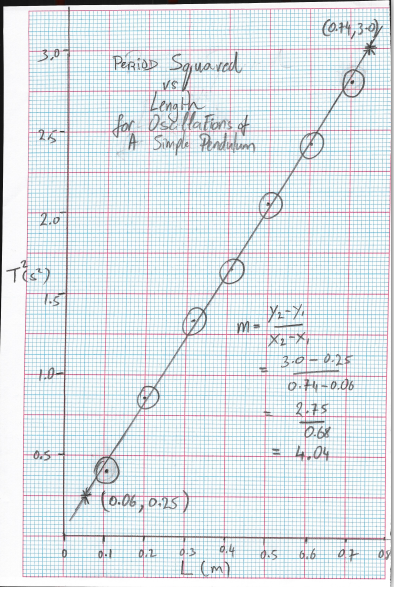 (0.74, 3.0)
PERIOD Squared
vs
Length
for Oscillations of
A Simple Pendulum
3.0
2.5
2.0
T²(s²)
1.5
1.0
0.5
m = y₂-y₁
x₂-x₁
= 3.0 - 0.25
0.74-0.06
= 2.75
0.68
= 4.04
(0.06, 0.25)
0 0.1 0.2 0.3 0.4 0.5 0.6 0.7 0.8
L (m)